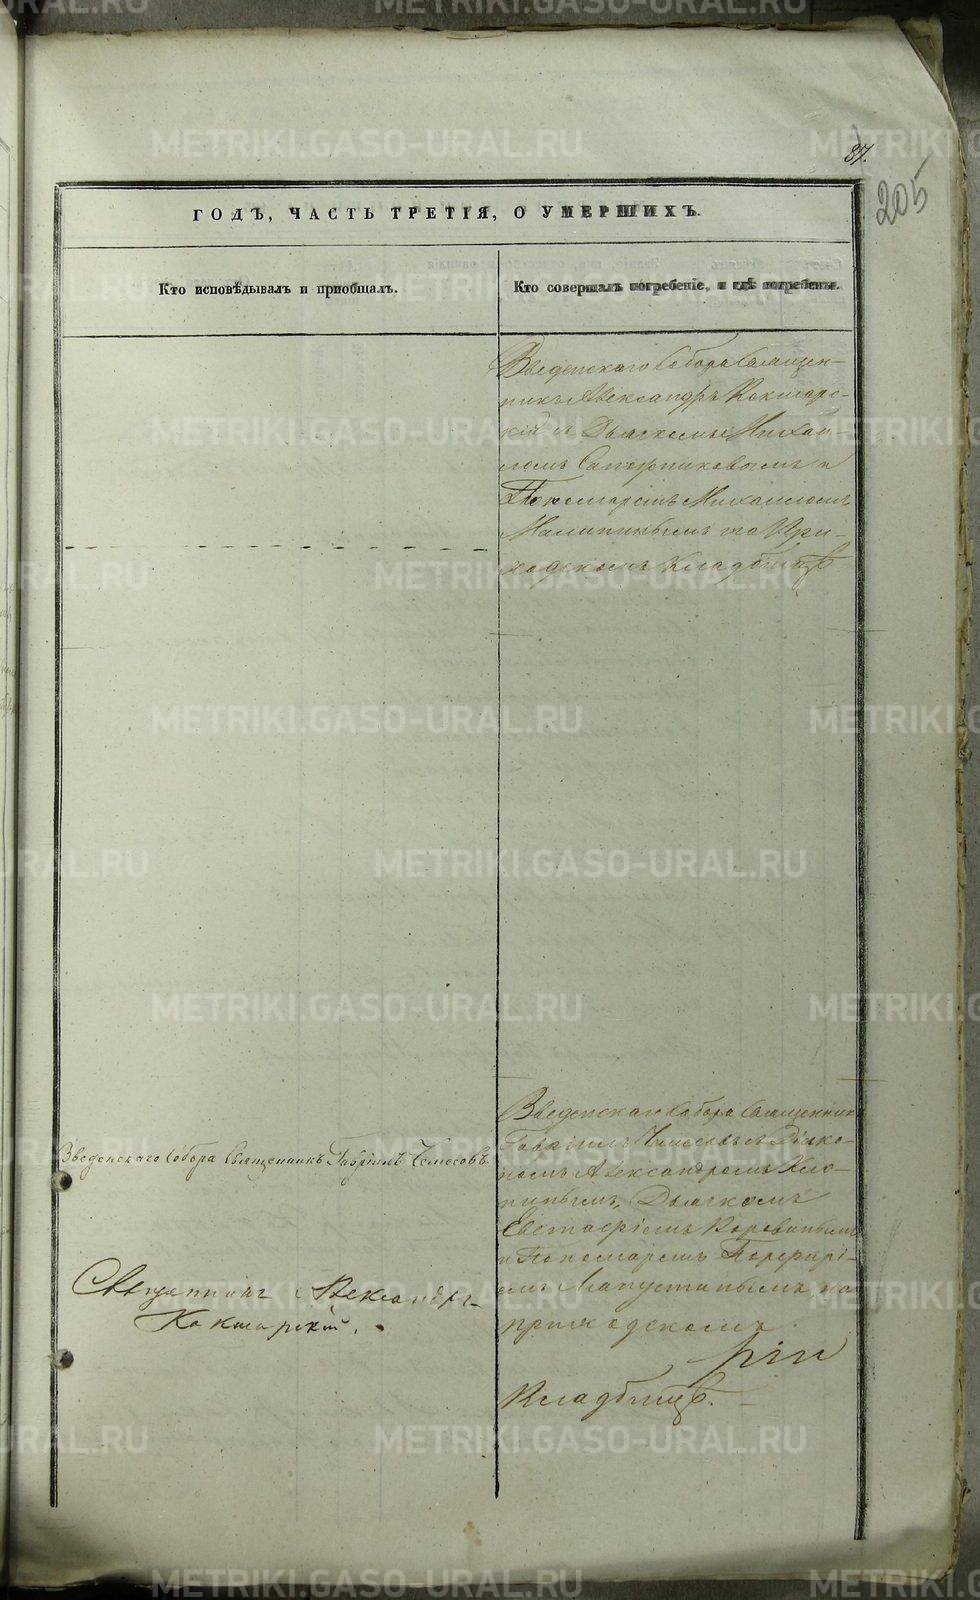 87.
205
ГОДЪ, ЧАСТЬ ТРЕТІЯ, О УМЕРШИХЪ.
Кто исповѣдывалъ и пріобщалъ.
Кто совершалъ погребеніе, и гдѣ погребены.
Введенскаго Собора Священ-
никъ Александръ Кокшарс-
кій съ Дьячкомъ Михаи-
ломъ Сапожниковымъ и
Пономаремъ Михаиломъ
на При-
ходскомъ Кладбищѣ
Введенскаго Собора Священникъ Гавріилъ Чемесовъ.
Священникъ Александръ
Кокшарскій.
Введенскаго Собора Священникъ
Гавріилъ Чемесовъ съ Діако-
номъ Александромъ Кло-
пинымъ, Дьячкомъ
Евстафіемъ Коровинымъ
и Пономаремъ Порфирі-
емъ Лапустинымъ на
приходскомъ
Кладбищѣ.
METRIKI.GASO-URAL.RU